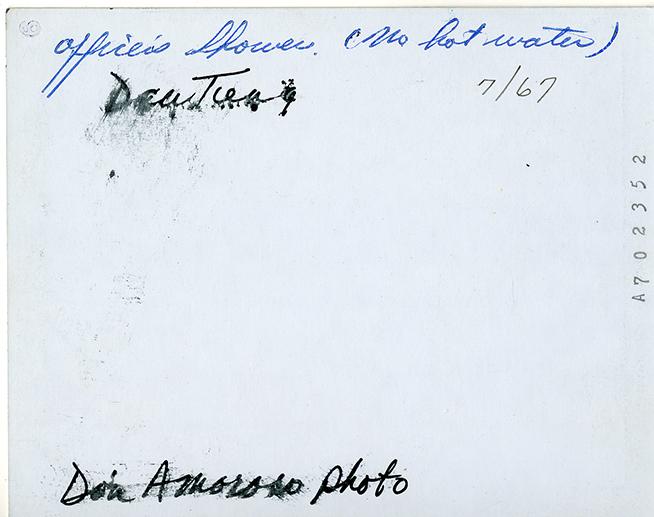 officer's Shower. (No hot water)
Dau Tieng
7/67
A702352
Don Amoroso photo